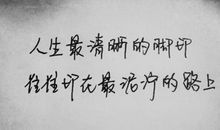 人生最清晰的脚印
往往印在最泥泞的路上